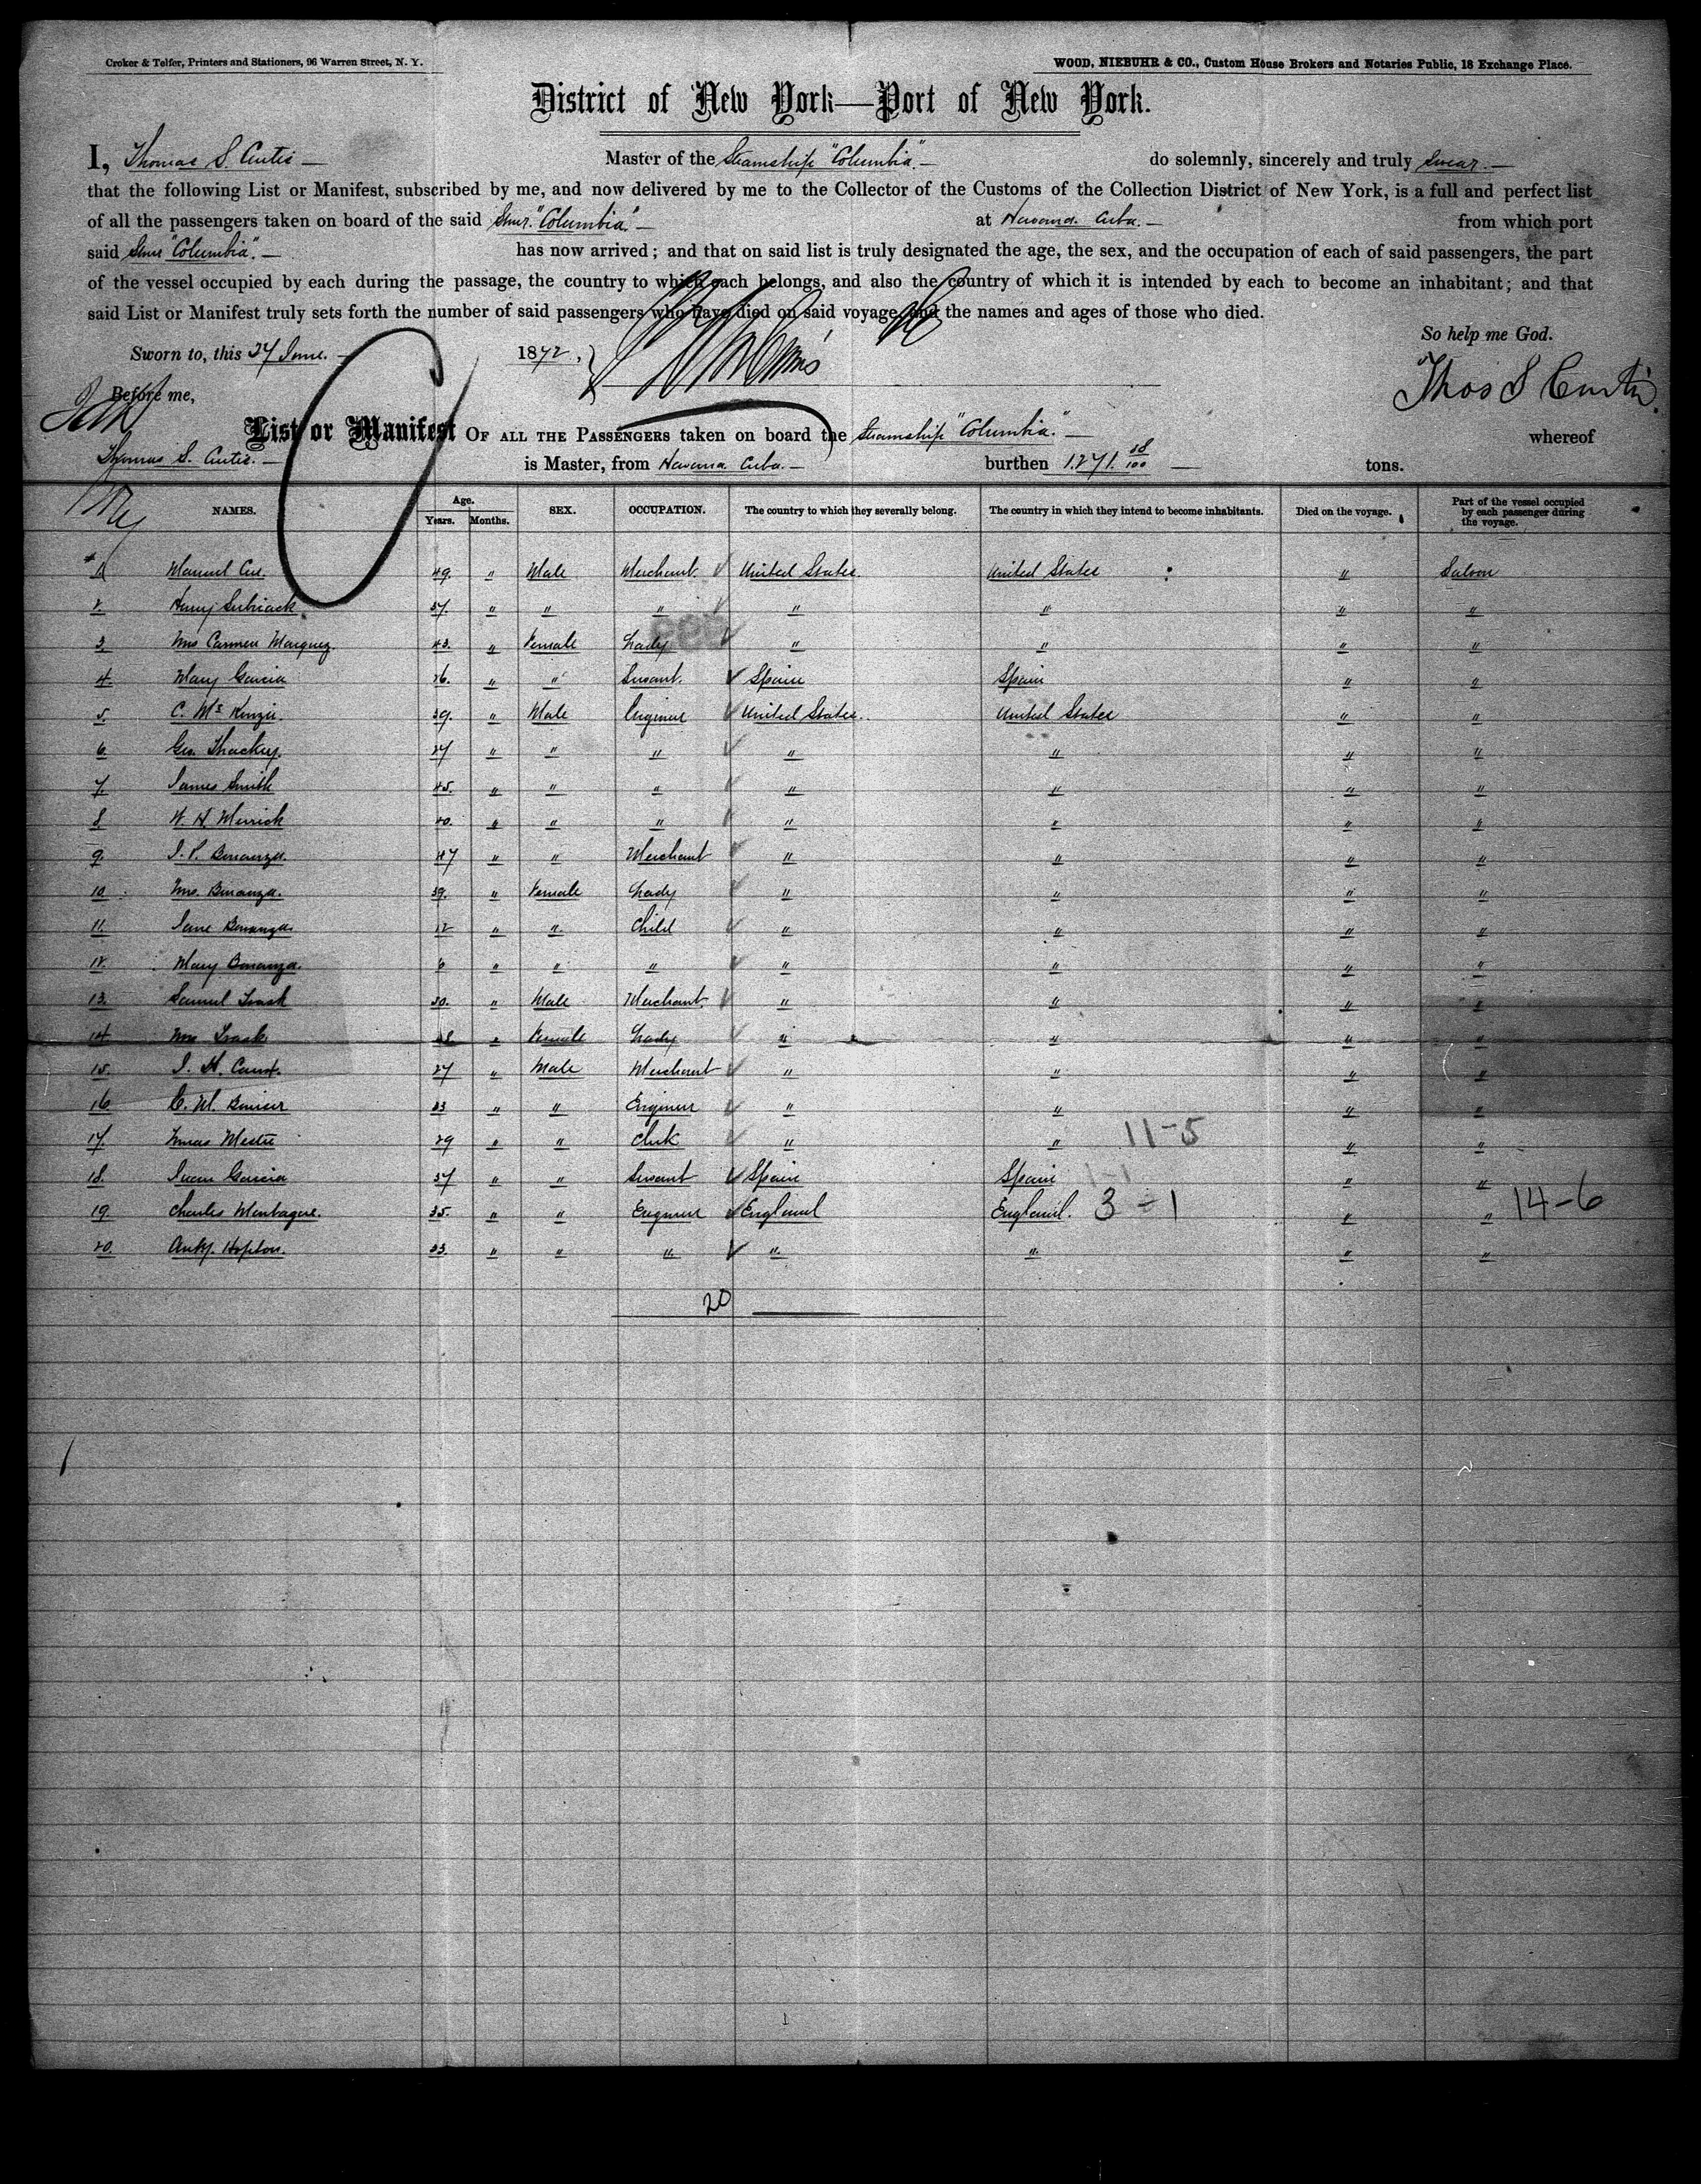 Croker & Telfer, Printers and Stationers, 96 Warren Street, N. Y.
WOOD, NIEBUHR & CO., Custom House Brokers and Notaries Public, 18 Exchange Place.
District of New York—Port of New York.
I, Thomas S. Curtis — Master of the Steamship "Columbia". — do solemnly, sincerely and truly swear. —
that the following List or Manifest, subscribed by me, and now delivered by me to the Collector of the Customs of the Collection District of New York, is a full and perfect list
of all the passengers taken on board of the said Stmr. "Columbia". — at Havana. Cuba. — from which port
said Stmr "Columbia". — has now arrived; and that on said list is truly designated the age, the sex, and the occupation of each of said passengers, the part
of the vessel occupied by each during the passage, the country to which each belongs, and also the country of which it is intended by each to become an inhabitant; and that
said List or Manifest truly sets forth the number of said passengers who have died on said voyage, and the names and ages of those who died.
So help me God.
Sworn to, this 27 June. — 1872,
Thos S Curtis.
Before me,
List or Manifest OF ALL THE PASSENGERS taken on board the Steamship "Columbia". — whereof
Thomas S. Curtis. — is Master, from Havana Cuba. — burthen 1.271. 18/100 — tons.
NAMES. Age. Years. Months. SEX. OCCUPATION. The country to which they severally belong. The country in which they intend to become inhabitants. Died on the voyage. Part of the vessel occupied by each passenger during the voyage.
1. Manuel 49. " Male Merchant. United States. United States " Saloon
2. Henry 37. " " " " " " "
3. Mrs Carmen Marquez. 43. " Female Lady " " " "
4. Mary Garcia 26. " " Servant. Spain Spain " "
5. C. McKenzie. 39. " Male Engineer United States. United States " "
6. Geo. Thackey. 27 " " " " " " "
7. James Smith 45. " " " " " " "
8. W. H. Merrick 40. " " " " " " "
9. 47 " " Merchant " " " "
10. Mrs. Bonanza. 39. " Female Lady " " " "
11. Jane Bonanza. 12 " " Child " " " "
12. Mary Bonanza. 6 " " " " " " "
13. Samuel Trask 30. " Male Merchant. " " " "
14. Mrs Trask 28. " Female Lady " " " "
15. J. H. 27 " Male Merchant " " " "
16. C. M. 33 " " Engineer " " " "
17. Mestre 29 " " Clerk " " " "
11-5
18. Juan Garcia 37 " " Servant Spain Spain " "
1-1
19. Charles Montague. 35. " " Engineer England England. 3-1 " " 14-6
20. Anty. Hopton. 33. " " " " " " "
20